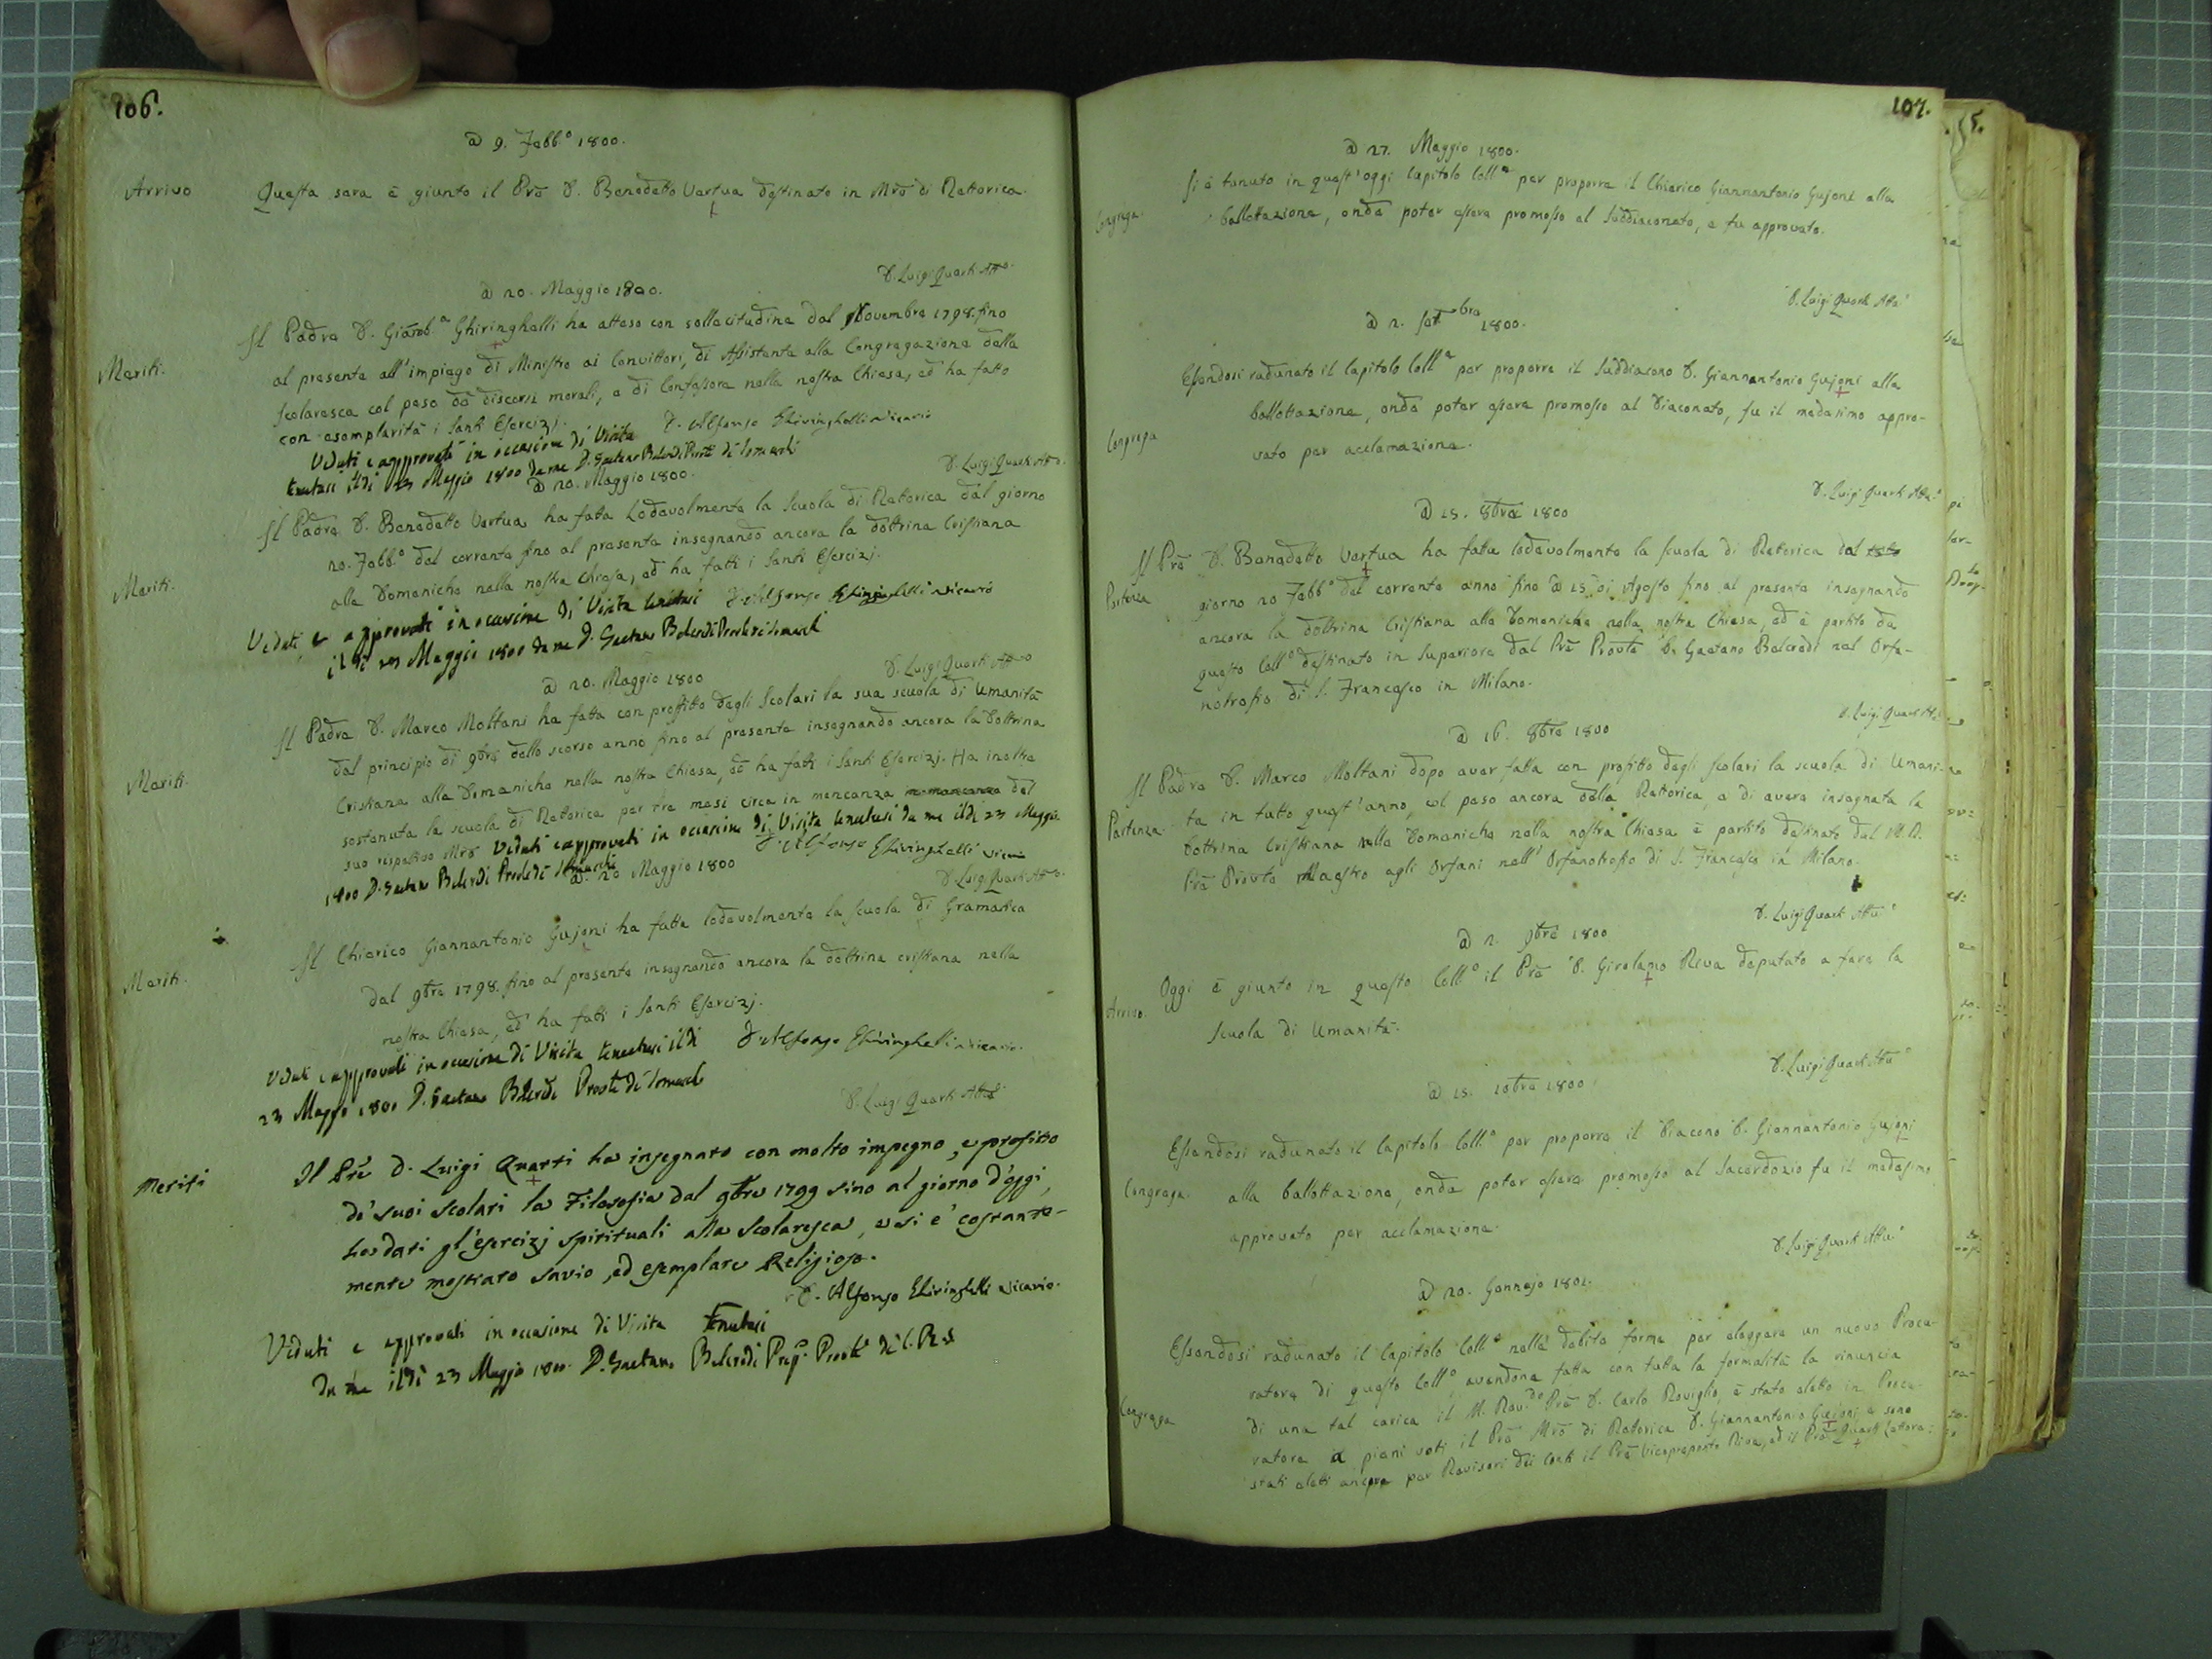 106.
a 9. Febb.o 1800.
Arrivo
Questa sera è giunto il Prē D. Benedetto Vertua destinato in Mrō di Rettorica.
D. Luigi Quarti Att.o
a 20. Maggio 1800.
Meriti.
Il Padre D. Giamb.a Ghiringhelli ha atteso con sollecitudine dal Novembre 1798. fino
al presente all'impiego di Ministro ai Convittori, di Assistente alla Congregazione della
scolaresca col peso de discorsi morali, e di Confessore nella nostra Chiesa, ed ha fatto
con esemplarità i Santi Esercizj. D. Alfonso Ghiringhelli Vicario
Veduti e approvati in occasione di Visita
tenutasi il dì 23 Maggio 1800 da me D. Gaetano Belcredi Prov.le di Lomardi
D. Luigi Quarti Att.o
a 20. Maggio 1800.
Meriti.
Il Padre D. Benedetto Vertua ha fatta Lodevolmente la Scuola di Rettorica dal giorno
20. Febb.o del corrente fino al presente insegnando ancora la dottrina Cristiana
alle Domeniche nella nostra Chiesa, ed ha fatti i Santi Esercizj.
Veduti, e approvati in occasione di Visita tenutasi D. Alfonso Ghiringhelli Vicario
il dì 23 Maggio 1800 da me D. Gaetano Belcredi
D. Luigi Quarti Att.o
a 20. Maggio 1800
Meriti.
Il Padre D. Marco Moltani ha fatta con profitto degli Scolari la sua scuola di Umanità
dal principio di 9bre dello scorso anno fino al presente insegnando ancora la Dottrina
Cristiana alle Domeniche nella nostra Chiesa, ed ha fatti i Santi Esercizj. Ha inoltre
sostenuta la scuola di Rettorica per tre mesi circa in mancanza in mancanza del
suo rispettivo Mrō Veduti e approvati in occasione di Visita tenutasi da me il dì 23 Maggio
1800 D. Gaetano Belcredi D. Alfonso Ghiringhelli Vicario
D. Luigi Quarti Att.o
a 20 Maggio 1800
Meriti.
Il Chierico Giannantonio Gujoni ha fatta lodevolmente la Scuola di Gramatica
dal 9bre 1798. fino al presente insegnando ancora la dottrina cristiana nella
nostra Chiesa, ed ha fatti i Santi Esercizj.
Veduti e approvati in occasione di Visita tenutasi il dì D. Alfonso Ghiringhelli Vicario.
23 Maggio 1800 D. Gaetano Belcredi
D. Luigi Quarti Att.o
Meriti
Il Prē D. Luigi Quarti ha insegnato con molto impegno, e profitto
de' suoi scolari la Filosofia dal 9bre 1799 sino al giorno d'oggi,
ha dati gl'esercizj spirituali alla Scolaresca, e si è costante-
mente mostrato savio, ed esemplare Religioso.
D. Alfonso Ghiringhelli Vicario.
Veduti e approvati in occasione di Visita tenutasi
da me il dì 23 Maggio 1800. D. Gaetano Belcredi
107.
a 27. Maggio 1800.
Congrega.
Si è tenuto in quest'oggi Capitolo Coll.e per proporre il Chierico Giannantonio Gujoni alla
ballottazione, onde poter essere promosso al Suddiaconato, e fu approvato.
D. Luigi Quarti Att.o
a 2. Sett.bre 1800.
Congrega
Essendosi radunato il Capitolo Coll.e per proporre il Suddiacono D. Giannantonio Gujoni alla
ballottazione, onde poter essere promosso al Diaconato, fu il medesimo appro-
vato per acclamazione.
D. Luigi Quarti Att.o
a 15. 8bre 1800
Partenza
Il Prē D. Benedetto Vertua ha fatta lodevolmente la scuola di Rettorica dal
giorno 20 Febb.o del corrente anno fino a 15 di Agosto fino al presente insegnando
ancora la dottrina Cristiana alle Domeniche nella nostra Chiesa, ed è partito da
questo Coll.o destinato in Superiore dal Prē Prov.le D. Gaetano Belcredi nel Orfa-
notrofio di S. Francesco in Milano.
D. Luigi Quarti Att.o
a 16. 8bre 1800
Partenza
Il Padre D. Marco Moltani dopo aver fatta con profitto degli scolari la scuola di Umani-
tà in tutto quest'anno, col peso ancora della Rettorica, e di avere insegnata la
Dottrina Cristiana nelle Domeniche nella nostra Chiesa è partito destinato dal M.R.
Prē Prov.le Maestro agli Orfani nell'Orfanotrofio di S. Francesco in Milano.
D. Luigi Quarti Att.o
a 2. 9bre 1800
Arrivo.
Oggi è giunto in questo Coll.o il Prē D. Girolamo Riva deputato a fare la
scuola di Umanità.
D. Luigi Quarti Att.o
a 15. 10bre 1800.
Congrega.
Essendosi radunato il Capitolo Coll.e per proporre il Diacono D. Giannantonio Gujoni
alla ballottazione, onde poter essere promosso al Sacerdozio fu il medesimo
approvato per acclamazione.
D. Luigi Quarti Att.o
a 20. Gennajo 1801.
Congrega
Essendosi radunato il Capitolo Coll.e nella debita forma per eleggere un nuovo Procu-
ratore di questo Coll.o, avendone fatta con tutta la formalità la rinuncia
di una tal carica il M. Rev.do Prē D. Carlo Roviglio, è stato eletto in Procu-
ratore a pieni voti il Prē Mrō di Rettorica D. Giannantonio Gujoni, e sono
stati eletti ancora per Revisori dei Conti il Prē Vicepreposto Riva, ed il Prē Quarti Lettore.